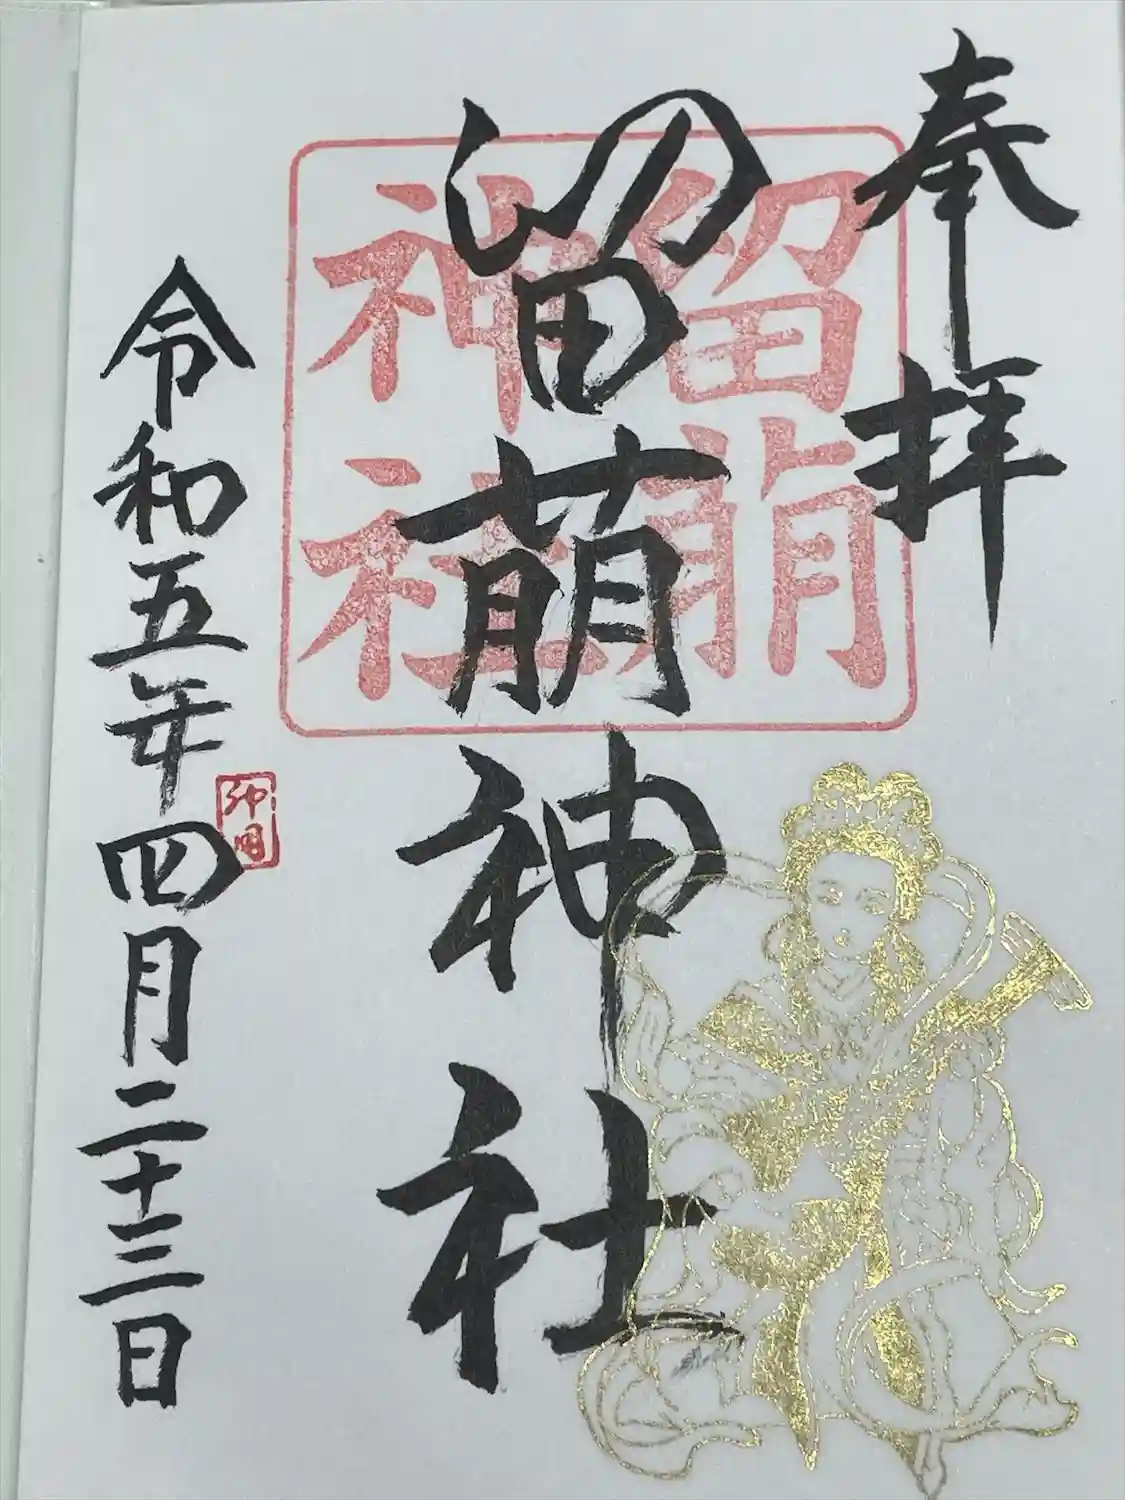 奉拝
留萌神社
留萌
神社
令和五年四月二十三日